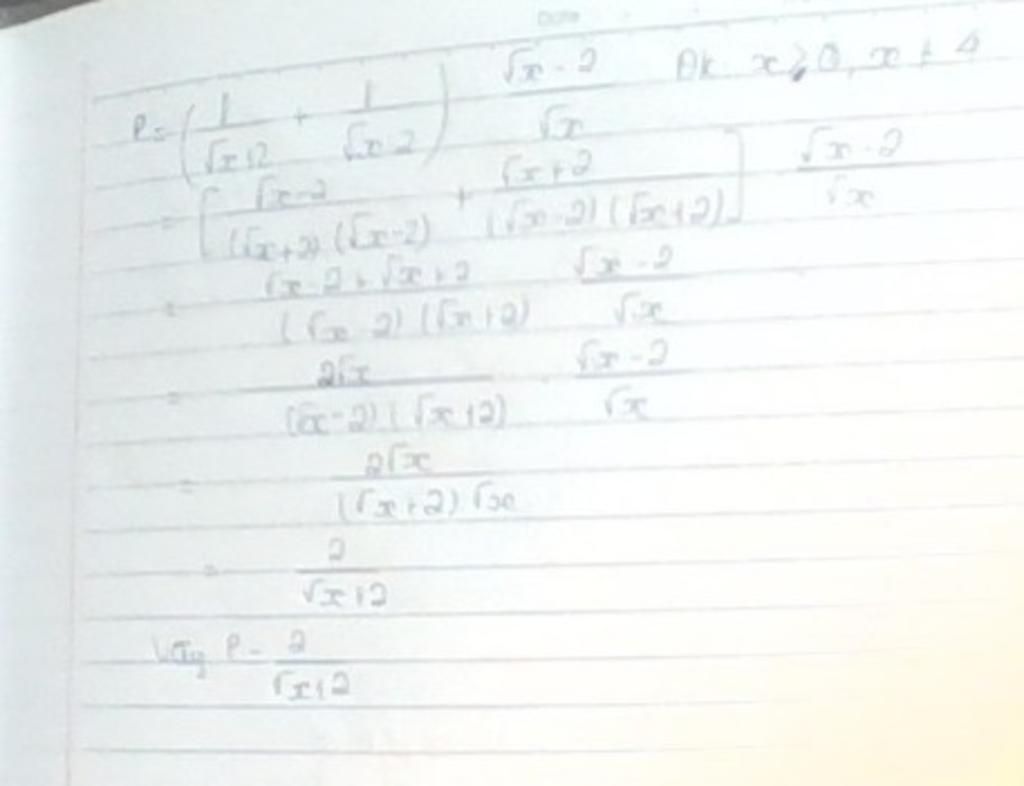 Date
P = (1/(√x+2) + 1/(√x-2)) · (√x-2)/√x ĐK x ≥ 0, x ≠ 4
= [(√x-2)/((√x+2)(√x-2)) + (√x+2)/((√x-2)(√x+2))] · (√x-2)/√x
= (√x-2+√x+2)/((√x-2)(√x+2)) · (√x-2)/√x
= 2√x/((√x-2)(√x+2)) · (√x-2)/√x
= 2√x/((√x+2)√x)
= 2/(√x+2)
Vậy P = 2/(√x+2)